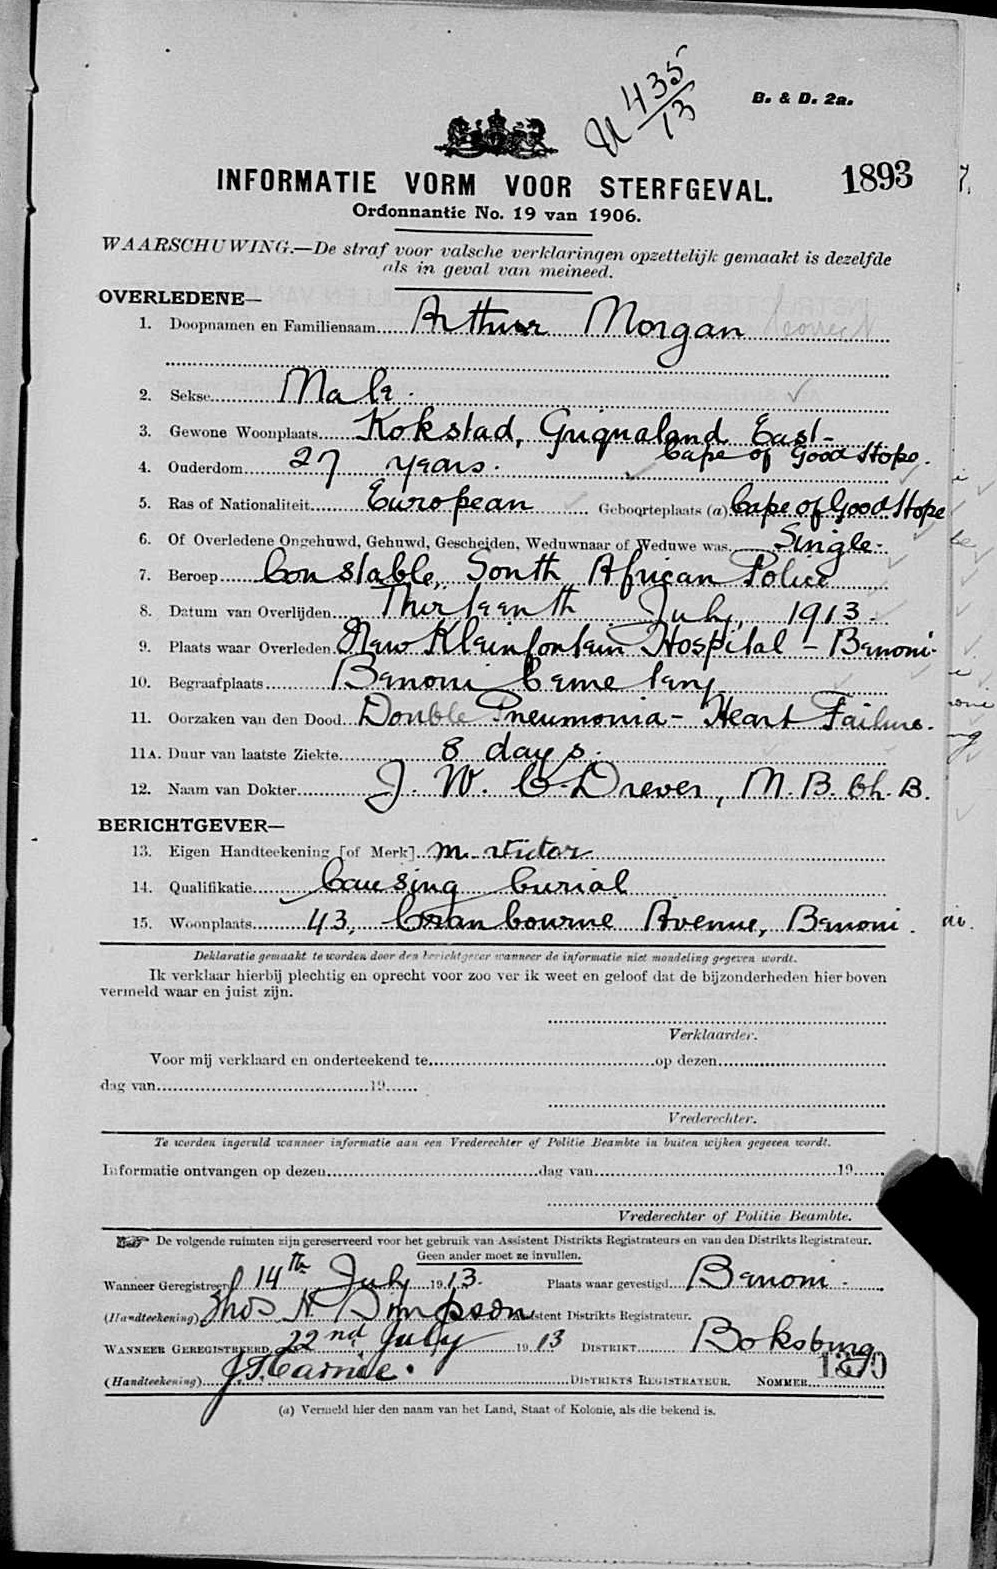 U 435/13
B. & D. 2a.
INFORMATIE VORM VOOR STERFGEVAL. 1893
Ordonnantie No. 19 van 1906.
WAARSCHUWING.—De straf voor valsche verklaringen opzettelijk gemaakt is dezelfde
als in geval van meineed.
OVERLEDENE—
1. Doopnamen en Familienaam Arthur Morgan
2. Sekse Male.
3. Gewone Woonplaats Kokstad, Griqualand East-
Cape of Good Hope.
4. Ouderdom 27 years.
5. Ras of Nationaliteit European Geboorteplaats (a) Cape of Good Hope
6. Of Overledene Ongehuwd, Gehuwd, Gescheiden, Weduwnaar of Weduwe was Single.
7. Beroep Constable, South African Police
8. Datum van Overlijden Thirteenth July, 1913.
9. Plaats waar Overleden New Kleinfontein Hospital - Benoni.
10. Begraafplaats Benoni Cemetery
11. Oorzaken van den Dood Double Pneumonia - Heart Failure.
11A. Duur van laatste Ziekte 8 days.
12. Naam van Dokter J. W. C. Drever, M. B. Ch. B.
BERICHTGEVER—
13. Eigen Handteekening [of Merk] M. Victor
14. Qualifikatie Causing burial
15. Woonplaats 43, Cranbourne Avenue, Benoni.
Deklaratie gemaakt te worden door den berichtgever wanneer de informatie niet mondeling gegeven wordt.
Ik verklaar hierbij plechtig en oprecht voor zoo ver ik weet en geloof dat de bijzonderheden hier boven
vermeld waar en juist zijn.
Verklaarder.
Voor mij verklaard en onderteekend te op dezen
dag van 19
Vrederechter.
Te worden ingevuld wanneer informatie aan een Vrederechter of Politie Beambte in buiten wijken gegeven wordt.
Informatie ontvangen op dezen dag van 19
Vrederechter of Politie Beambte.
De volgende ruimten zijn gereserveerd voor het gebruik van Assistent Distrikts Registrateurs en van den Distrikts Registrateur.
Geen ander moet ze invullen.
Wanneer Geregistreerd 14th July 1913. Plaats waar gevestigd Benoni.
(Handteekening) Thos H Simpson Assistent Distrikts Registrateur.
WANNEER GEREGISTREERD 22nd July 1913 DISTRIKT Boksburg
(Handteekening) J. T. Carnie. DISTRIKTS REGISTRATEUR. NOMMER
(a) Vermeld hier den naam van het Land, Staat of Kolonie, als die bekend is.